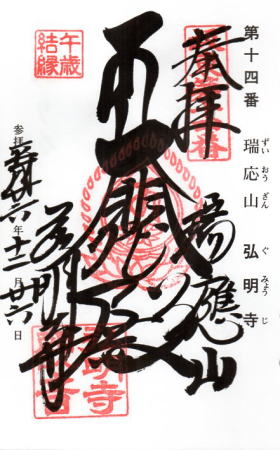 第十四番 瑞応山 弘明寺
ずい おう ざん ぐ みょう じ
奉拝
瑞應山
弘明寺
参拝 平成廿六年十二月廿六日
午歳
結縁